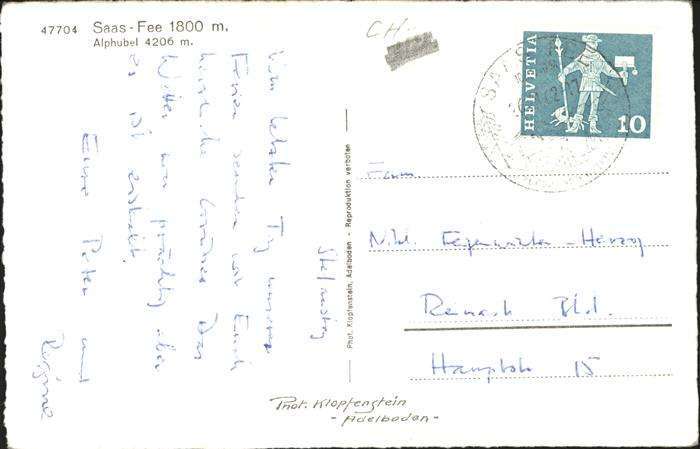 47704 Saas-Fee 1800 m.
Alphubel 4206 m.
CH.-
HELVETIA
10
SAAS
Samstag
Vom letzten Tag unserer
Ferien senden wir Euch
herzliche Grüsse. Das
Wetter war prächtig aber
es ist
Eure Peter und
Régine
Phot. Klopfenstein, Adelboden - Reproduktion verboten
Fam.
-Herzog
Reinach Bld.
15
Phot. Klopfenstein
- Adelboden -